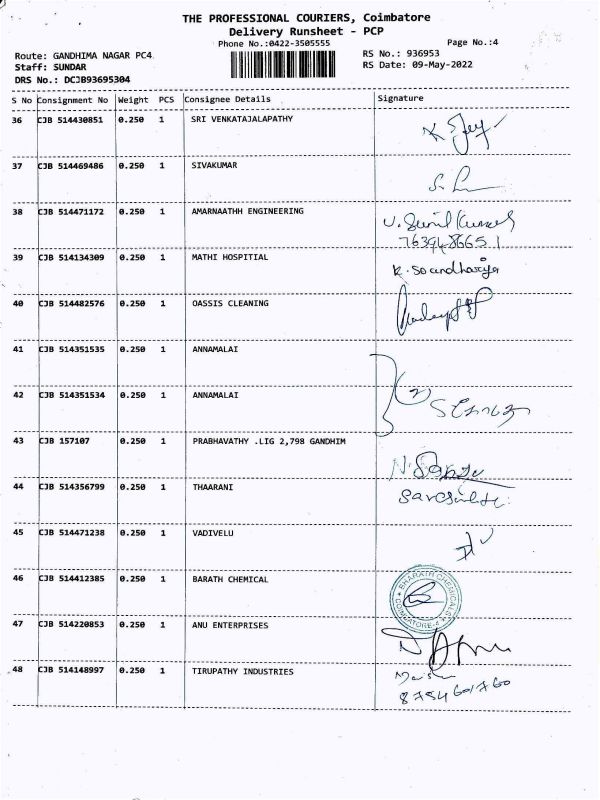 THE PROFESSIONAL COURIERS, Coimbatore
Delivery Runsheet - PCP
Phone No.:0422-3505555
Page No.:4
Route: GANDHIMA NAGAR PC4
RS No.: 936953
Staff: SUNDAR
RS Date: 09-May-2022
DRS No.: DCJB93695304
S No Consignment No Weight PCS Consignee Details Signature
36 CJB 514430851 0.250 1 SRI VENKATAJALAPATHY
37 CJB 514469486 0.250 1 SIVAKUMAR
38 CJB 514471172 0.250 1 AMARNAATHH ENGINEERING
39 CJB 514134309 0.250 1 MATHI HOSPITIAL
K. Soandhariya
40 CJB 514482576 0.250 1 OASSIS CLEANING
41 CJB 514351535 0.250 1 ANNAMALAI
42 CJB 514351534 0.250 1 ANNAMALAI
(2)
43 CJB 157107 0.250 1 PRABHAVATHY .LIG 2,798 GANDHIM
44 CJB 514356799 0.250 1 THAARANI
45 CJB 514471238 0.250 1 VADIVELU
46 CJB 514412385 0.250 1 BARATH CHEMICAL
BHARATH CHEMICALS
COIMBATORE-4
47 CJB 514220853 0.250 1 ANU ENTERPRISES
48 CJB 514148997 0.250 1 TIRUPATHY INDUSTRIES